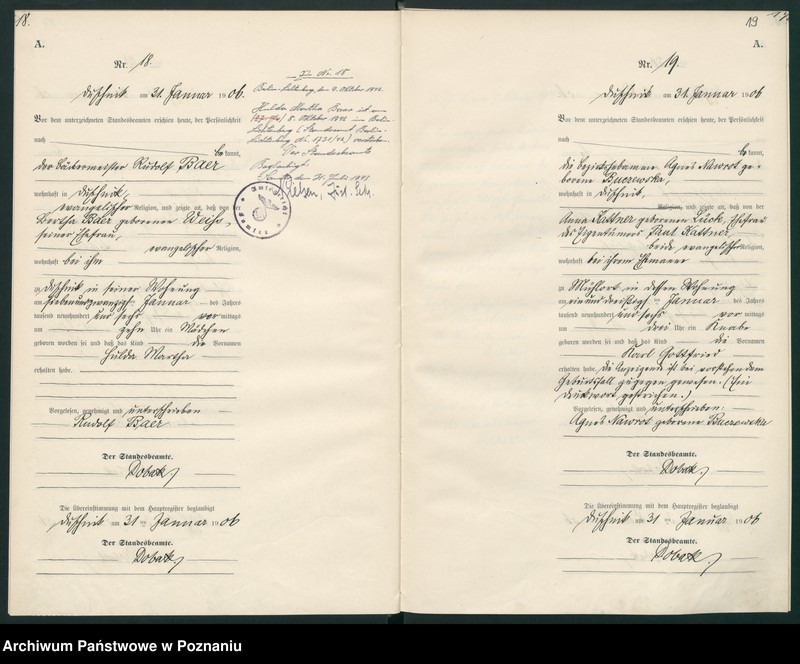 18.
A.
Nr. 18.
Duschnik am 31. Januar 1906.
Vor dem unterzeichneten Standesbeamten erschien heute, der Persönlichkeit
nach
bekannt,
der Bäckermeister Rudolf Baer
wohnhaft in Duschnik,
evangelischer Religion, und zeigte an, daß von
Bertha Baer geborenen Weiß,
seiner Ehefrau,
evangelischer Religion,
wohnhaft bei ihm
zu Duschnik in seiner Wohnung
am siebenundzwanzigsten Januar des Jahres
tausend neunhundert und sechs vor mittags
um zehn Uhr ein Mädchen
geboren worden sei und daß das Kind die Vornamen
Hulda Martha
erhalten habe.
Vorgelesen, genehmigt und unterschrieben
Rudolf Baer
Der Standesbeamte.
Dobak
Die Übereinstimmung mit dem Hauptregister beglaubigt
Duschnik am 31 ten Januar 1906
Der Standesbeamte.
Dobak
Zu Nr. 18
Berlin-Lichtenberg, den 9. Oktober 1942
Hulda Martha Baer ist am
8. Oktober 1942 in Berlin-
Lichtenberg (Standesamt Berlin-
Lichtenberg Nr. ) verstorben.
Der Standesbeamte
Beglaubigt
19
A.
Nr. 19.
Duschnik am 31. Januar 1906
Vor dem unterzeichneten Standesbeamten erschien heute, der Persönlichkeit
nach
bekannt,
die Bezirkshebamme Agnes Nawrot ge-
borene Buczewska,
wohnhaft in Duschnik,
Religion, und zeigte an, daß von der
Anna Kattner geborenen Lück, Ehefrau
des Eigentümers Paul Kattner
beide evangelischer Religion,
wohnhaft bei ihrem Ehemann
zu Mühlort in dessen Wohnung
am einunddreißigsten Januar des Jahres
tausend neunhundert und sechs vor mittags
um drei Uhr ein Knabe
geboren worden sei und daß das Kind die Vornamen
Karl Gottfried
erhalten habe. Die Anzeigende ist bei vorstehendem
Geburtsfall zugegen gewesen. (Ein
Druckwort gestrichen.)
Vorgelesen, genehmigt und unterschrieben:
Agnes Nawrot geborene Buczewska
Der Standesbeamte.
Dobak
Die Übereinstimmung mit dem Hauptregister beglaubigt
Duschnik am 31 ten Januar 1906
Der Standesbeamte.
Dobak
Archiwum Państwowe w Poznaniu